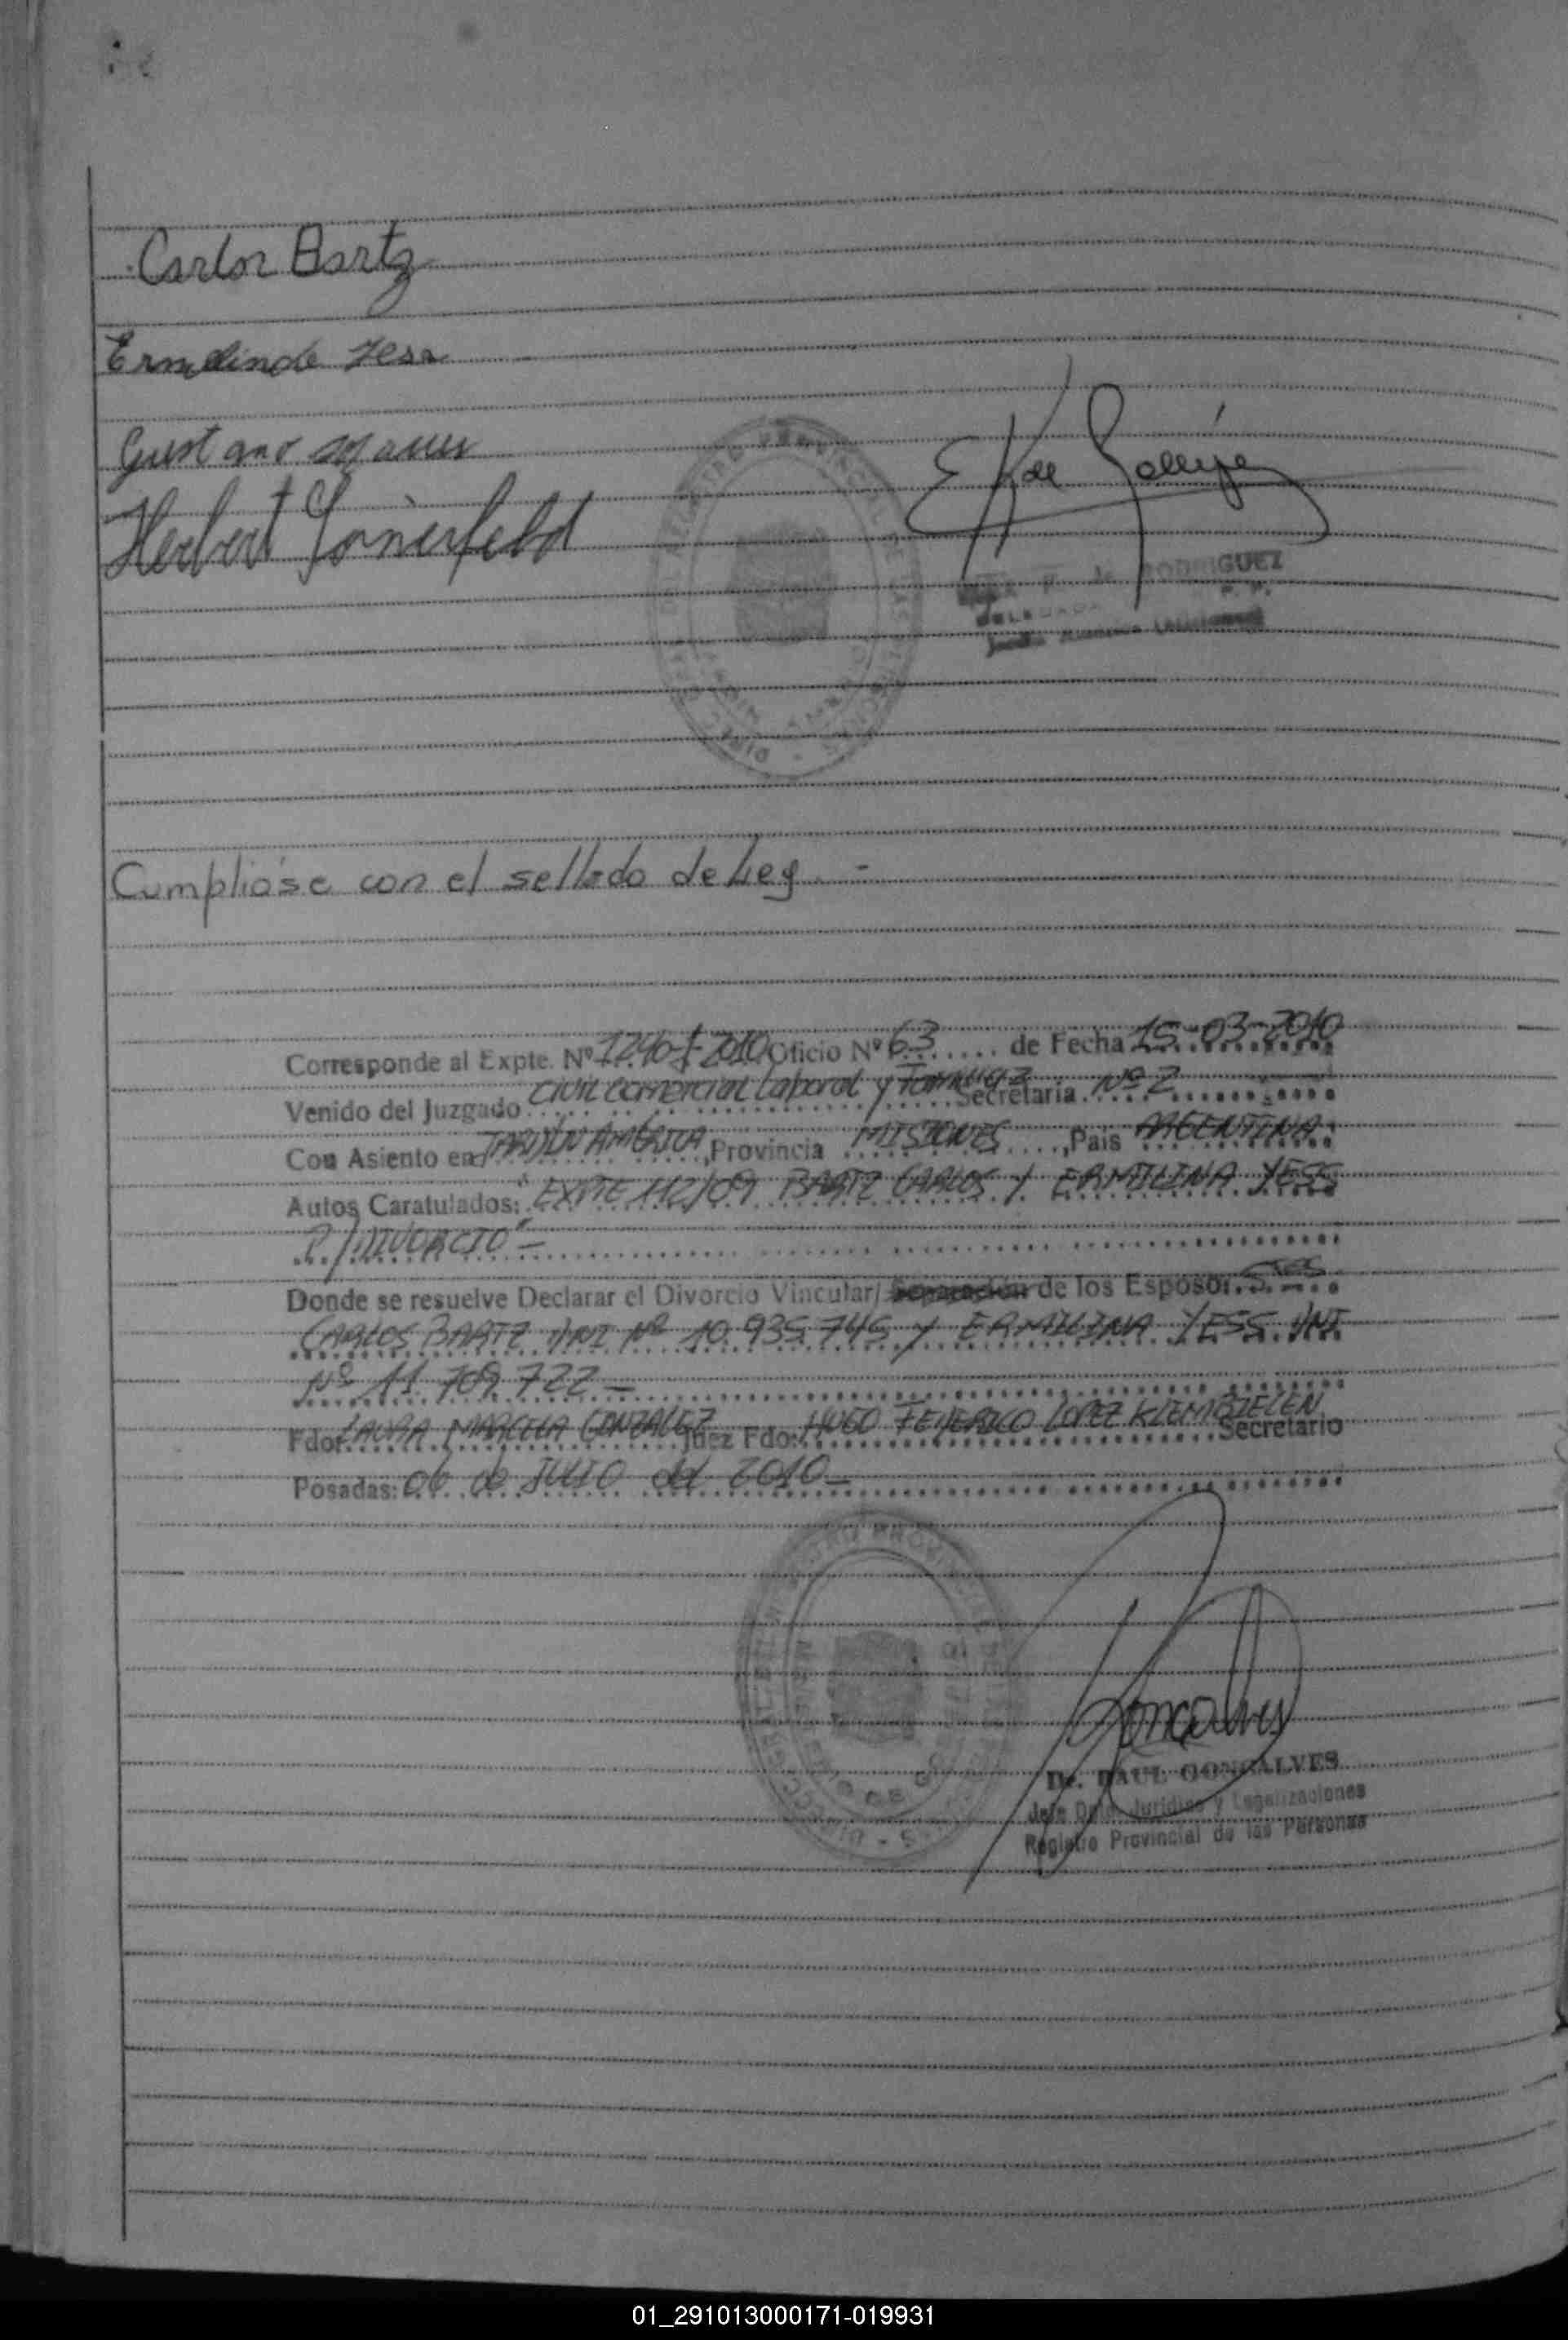 Carlos Bartz
Ermelinde Jess
Herbert Sommerfeld
RODRIGUEZ
Cumplióse con el sellado de Ley. -
Corresponde al Expte. Nº Oficio Nº 63 de Fecha 15-03-2010
Venido del Juzgado Civil Comercial Laboral y Familia Secretaria Nº 2
Con Asiento en JARDIN AMERICA, Provincia MISIONES, Pais ARGENTINA
Autos Caratulados: "EXPTE 112/09 BARTZ CARLOS Y ERMILINA YESS
P/DIVORCIO"-
Donde se resuelve Declarar el Divorcio Vincular/ de los Esposos.
CARLOS BARTZ DNI Nº 10.935.745 Y ERMILINA YESS DNI
Nº 11.709.722 -
Fdo: LAURA MARCELA GONZALEZ Juez Fdo: HUGO FEDERICO LOPEZ Secretario
Posadas: 06 de JULIO del 2010 -
Dr. RAUL GONCALVES
Jefe Dpto. Juridico y Legalizaciones
Registro Provincial de las Personas
01_291013000171-019931